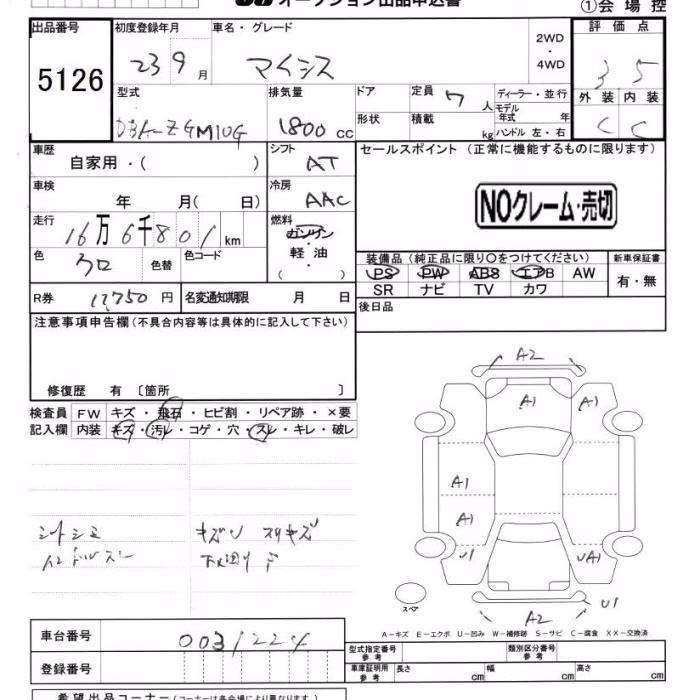 オークション出品申込書
①会場控
出品番号 初度登録年月 車名・グレード 評価点
5126 23 9月 マイシス 2WD ・ 4WD 3 5
型式 排気量 ドア 定員 7 人 ディーラー・並行 外装 内装
DBA-ZGM10G 1800 cc 形状 積載 kg モデル年式 年 ハンドル 左・右 C C
車歴 シフト セールスポイント (正常に機能するものに限ります)
自家用・( ) AT
車検 冷房 NOクレーム・売切
年 月( 日) AAC
走行 燃料
16万6千801km ガソリン
軽油
・( )
色 色替 色コード 装備品(純正品に限り○をつけてください) 新車保証書
クロ PS PW ABS エアB AW 有・無
SR ナビ TV カワ
R券 12750円 名変通知期限 月 日 後日品
注意事項申告欄(不具合内容等は具体的に記入して下さい)
修復歴 有 〔箇所 〕
検査員 FW キズ・飛石・ヒビ割・リペア跡・×要
記入欄 内装 キズ・汚レ・コゲ・穴・スレ・キレ・破レ
A2
A1 A1
A1
A1
U1 UA1
シートシミ キズU スリキズ
下回りサ
スペア
U1
A2
A-キズ E-エクボ U-凹み W-補修跡 S-サビ C-腐食 XX-交換済
車台番号 0031224
型式指定番号 参考 類別区分番号 参考
登録番号 車庫証明用 参考 長さ cm 幅 cm 高さ cm
希望出品コーナー(コーナーは各会場により異なります。)